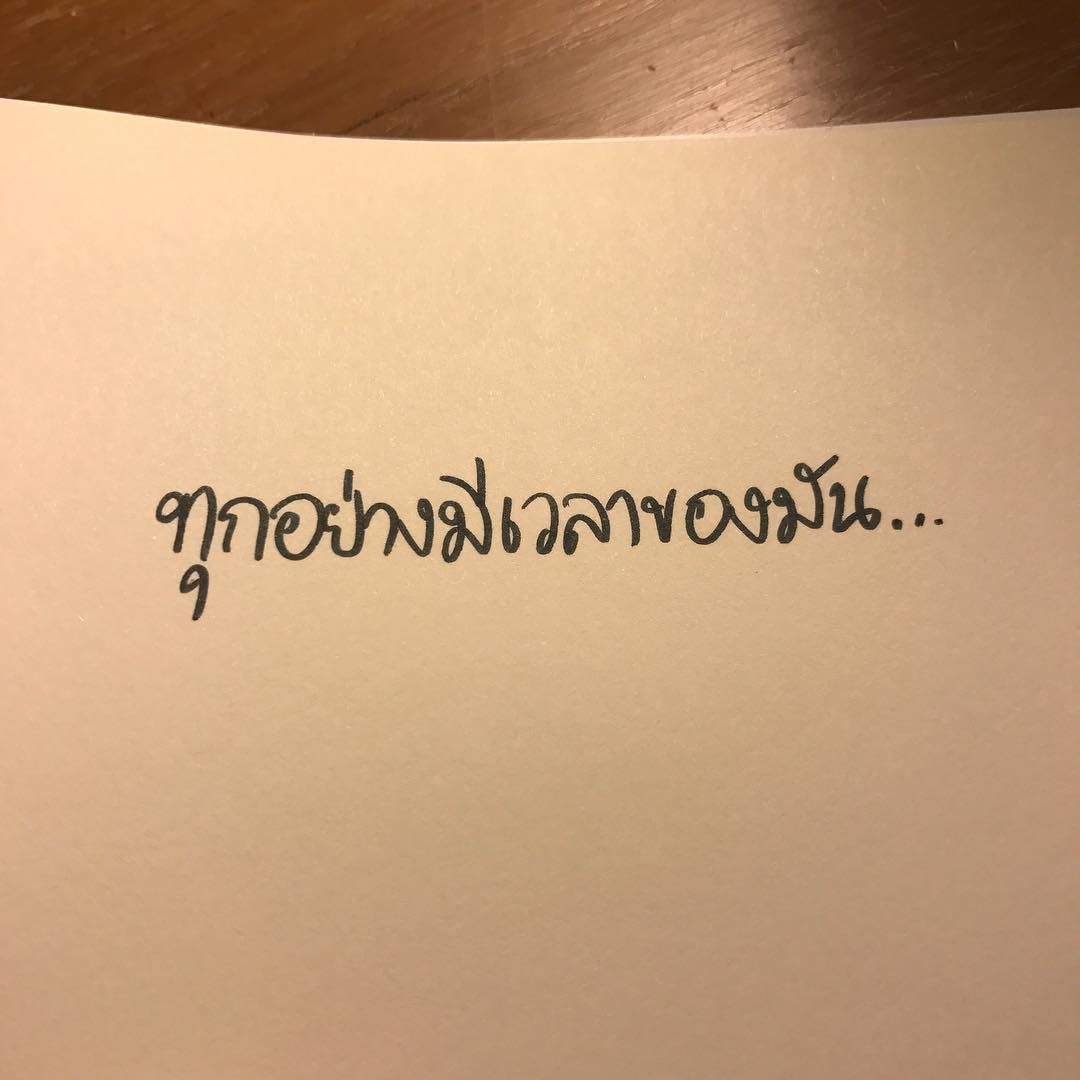 ทุกอย่างมีเวลาของมัน...